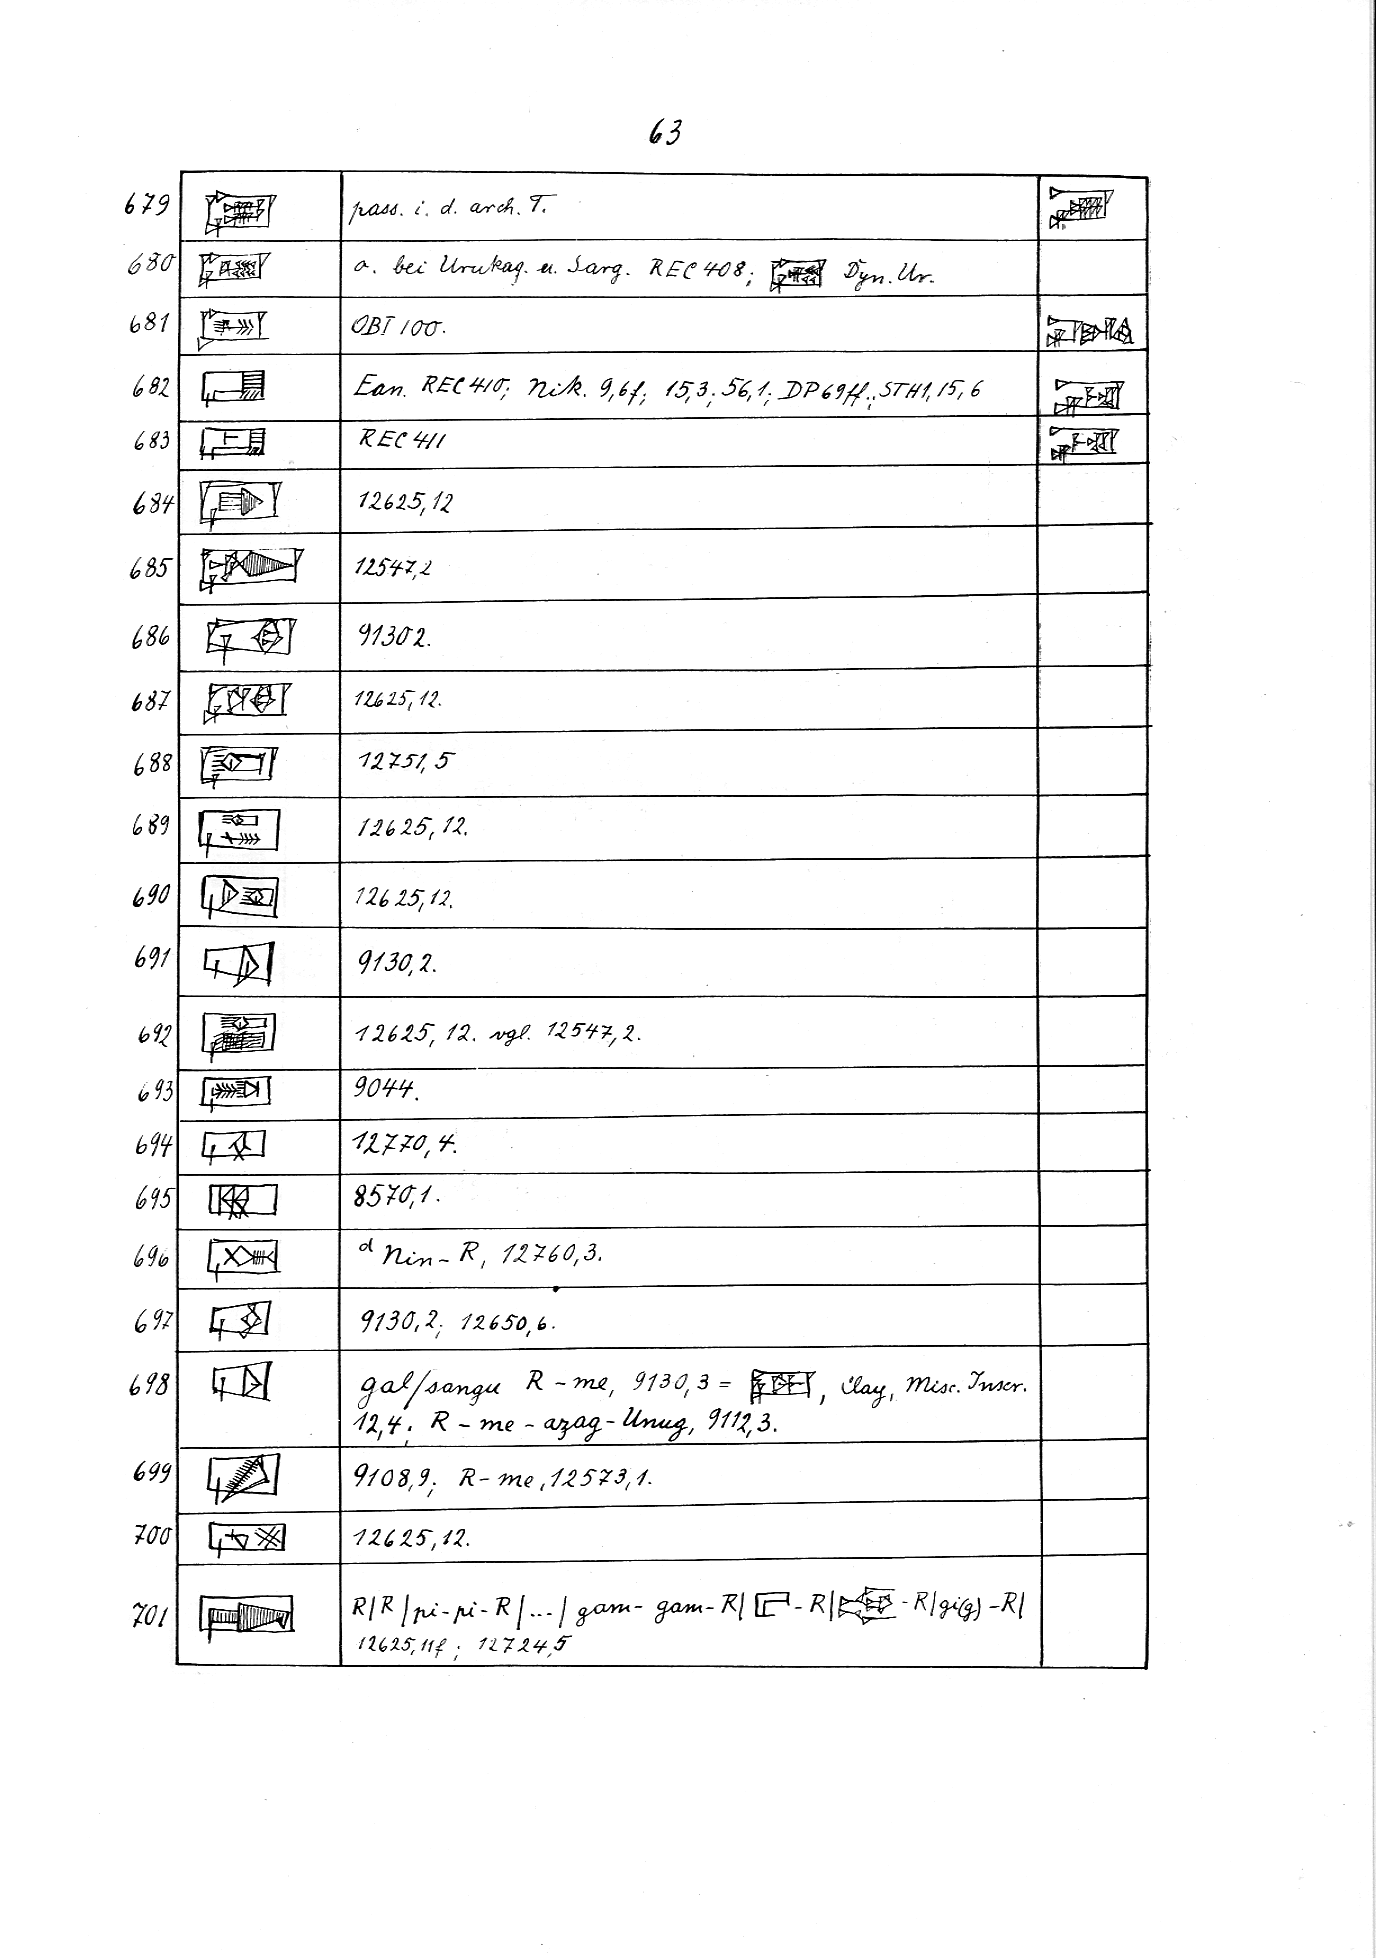 63
679 pass. i. d. arch. T.
680 a. bei Urukag. u. Sarg. REC 408; Dyn. Ur.
681 OBI 100.
682 Ean. REC 410; Nik. 9,6f; 15,3; 56,1; DP 69ff.; STH1,15,6
683 REC 411
684 12625,12
685 12547,2
686 91302.
687 12625,12.
688 12751,5
689 12625,12.
690 12625,12.
691 9130,2.
692 12625,12. vgl. 12547,2.
693 9044.
694 12770,4.
695 8570,1.
696 d Nin-R, 12760,3.
697 9130,2; 12650,6.
698 gal/sangu R-me, 9130,3 = , Clay, Misc. Inscr.
12,4; R-me-azag-Unug, 9112,3.
699 9108,9; R-me, 12573,1.
700 12625,12.
701 R|R|pi-pi-R|...|gam-gam-R| -R| -R|gi(g)-R|
12625,11f; 12724,5